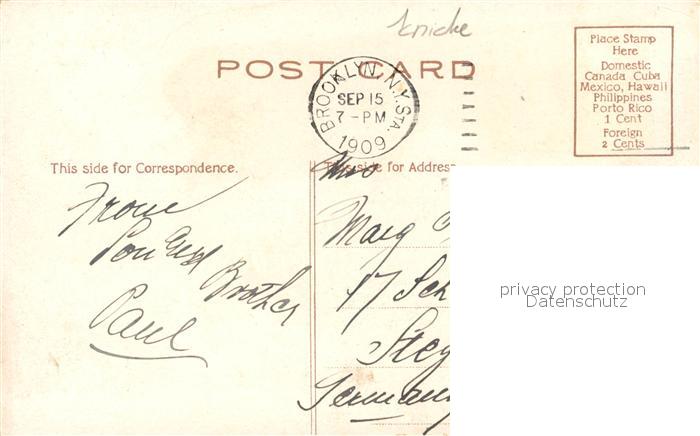 POST CARD
BROOKLYN, N.Y. STA.
SEP 15
7-PM
1909
Place Stamp
Here
Domestic
Canada Cuba
Mexico, Hawaii
Philippines
Porto Rico
1 Cent
Foreign
2 Cents
This side for Correspondence.
From
Brother
Paul
This side for Address
Marg
17 Sch
Stey
Germany
privacy protection
Datenschutz